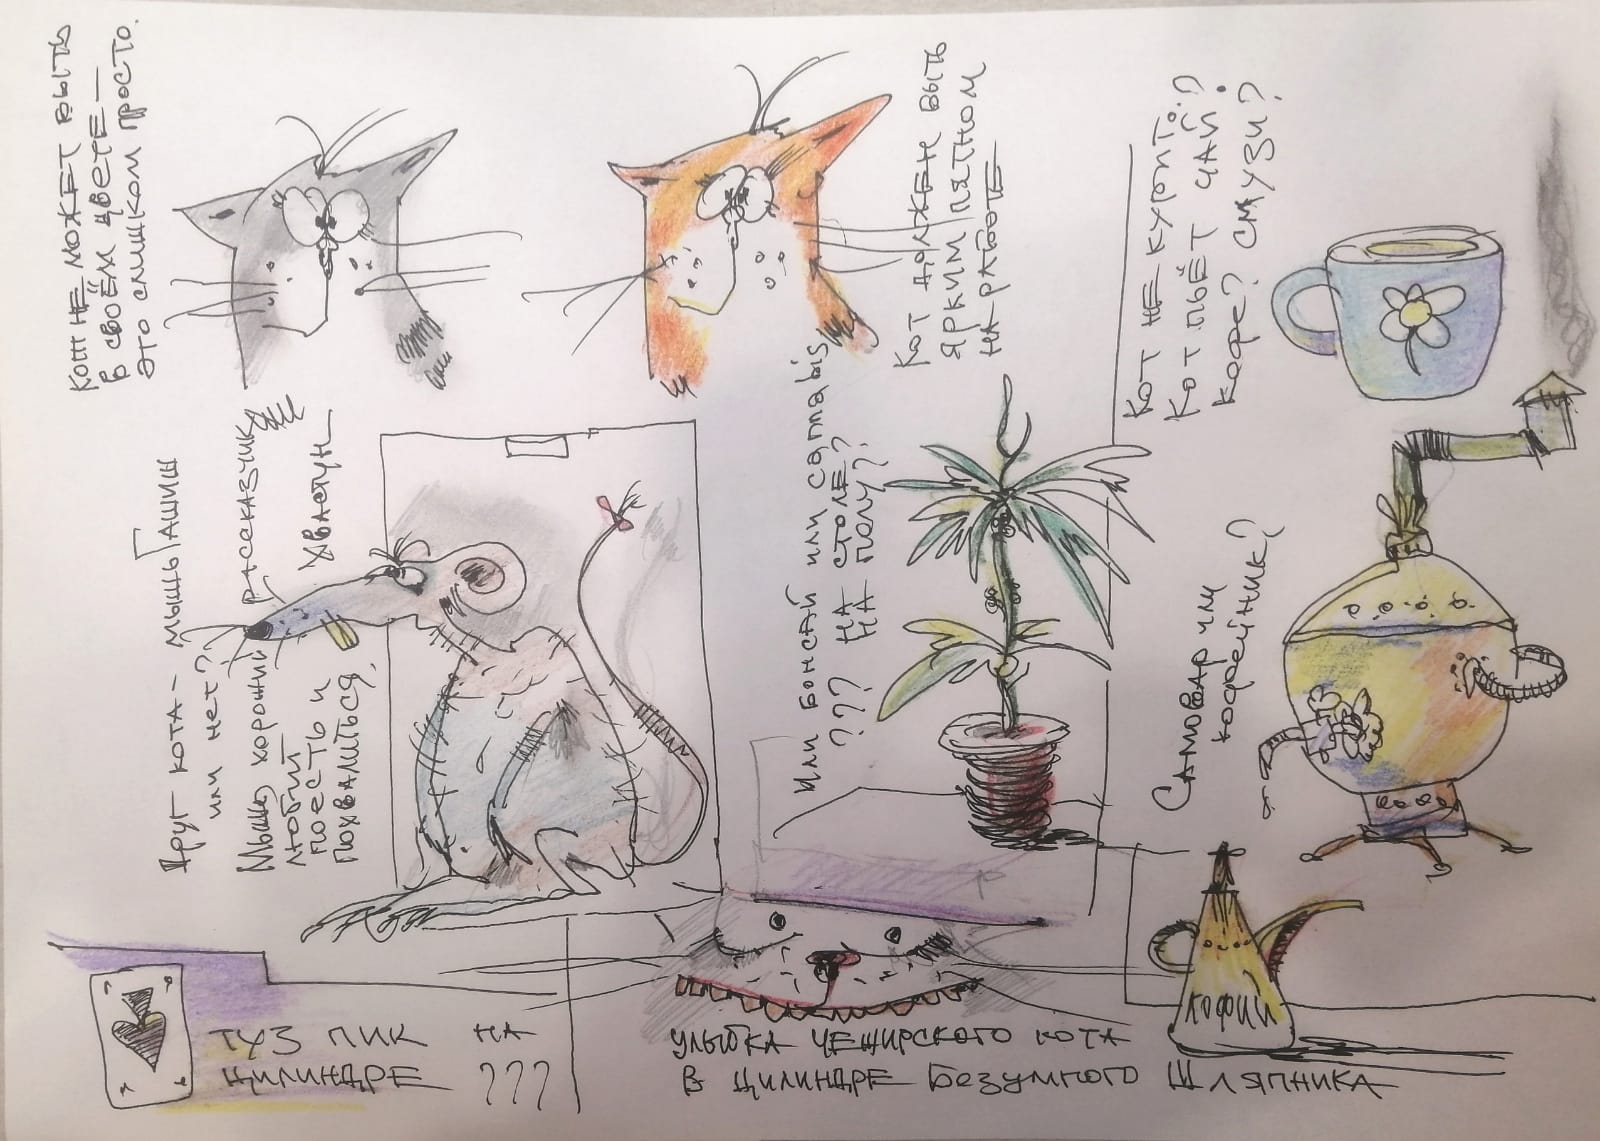 Кот не может быть
в своём цвете —
это слишком просто.
Кот должен быть
ярким пятном
на работе
Кот не курит?
Кот пьёт чай?
Кофе? Смузи?
Друг кота — мышь Гашиш
или нет?
Мышь хороший рассказчик
любит
поесть и
похвалиться.
хвастун
Или бонсай или cannabis,
??? на столе?
на полу?
Самовар или
кофейник?
кофий
туз пик на
цилиндре ???
улыбка Чеширского кота
в цилиндре Безумного Шляпника